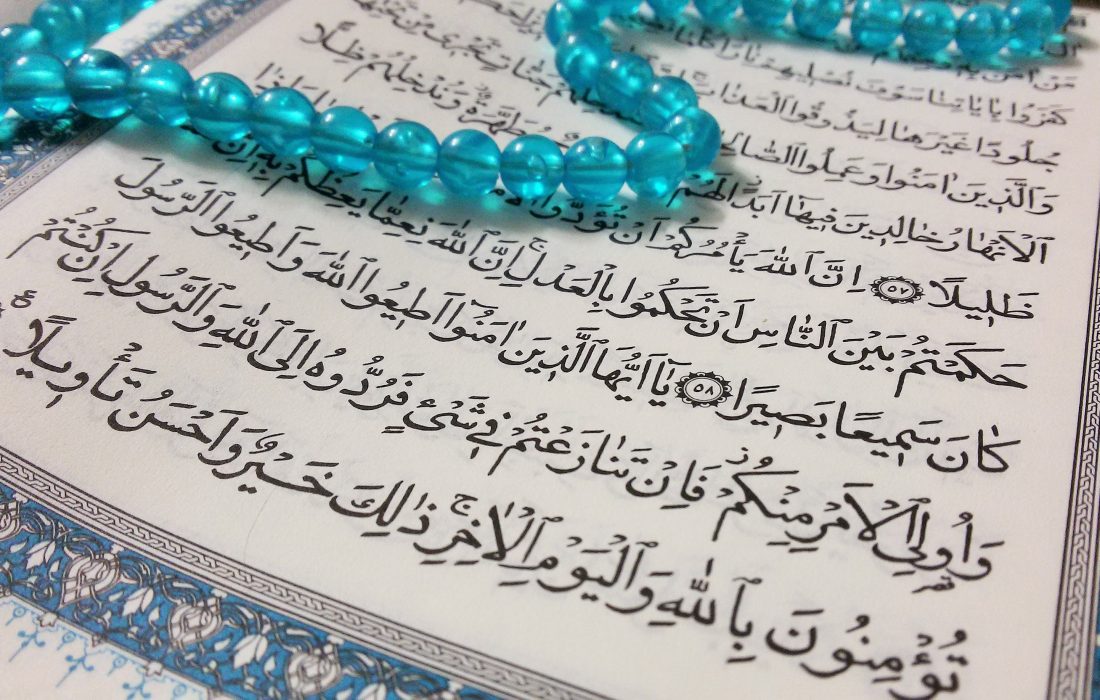 مَنْ اٰمَنَ
كَفَرُوا بِاٰيَاتِنَا سَوْفَ نُصْلِيهِمْ نَارًا كُلَّمَا
جُلُودًا غَيْرَهَا لِيَذُوقُوا الْعَذَابَ
وَالَّذِينَ اٰمَنُوا وَعَمِلُوا الصَّالِحَاتِ جَنَّاتٍ تَجْرِي مِنْ تَحْتِهَا
الْاَنْهَارُ خَالِدِينَ فِيهَا اَبَدًا لَهُمْ مُطَهَّرَةٌ وَنُدْخِلُهُمْ ظِلًّا
ظَلِيلًا ﴿٥٧﴾ اِنَّ اللّٰهَ يَأْمُرُكُمْ اَنْ تُؤَدُّوا
حَكَمْتُمْ بَيْنَ النَّاسِ اَنْ تَحْكُمُوا بِالْعَدْلِ اِنَّ اللّٰهَ نِعِمَّا يَعِظُكُمْ بِهِ اِنَّ
كَانَ سَمِيعًا بَصِيرًا ﴿٥٨﴾ يَا اَيُّهَا الَّذِينَ اٰمَنُوا اَطِيعُوا اللّٰهَ وَاَطِيعُوا الرَّسُولَ
وَاُولِي الْاَمْرِ مِنْكُمْ فَاِنْ تَنَازَعْتُمْ فِي شَيْءٍ فَرُدُّوهُ اِلَى اللّٰهِ وَالرَّسُولِ اِنْ كُنْتُمْ
تُؤْمِنُونَ بِاللّٰهِ وَالْيَوْمِ الْاٰخِرِ ذٰلِكَ خَيْرٌ وَاَحْسَنُ تَأْوِيلًا